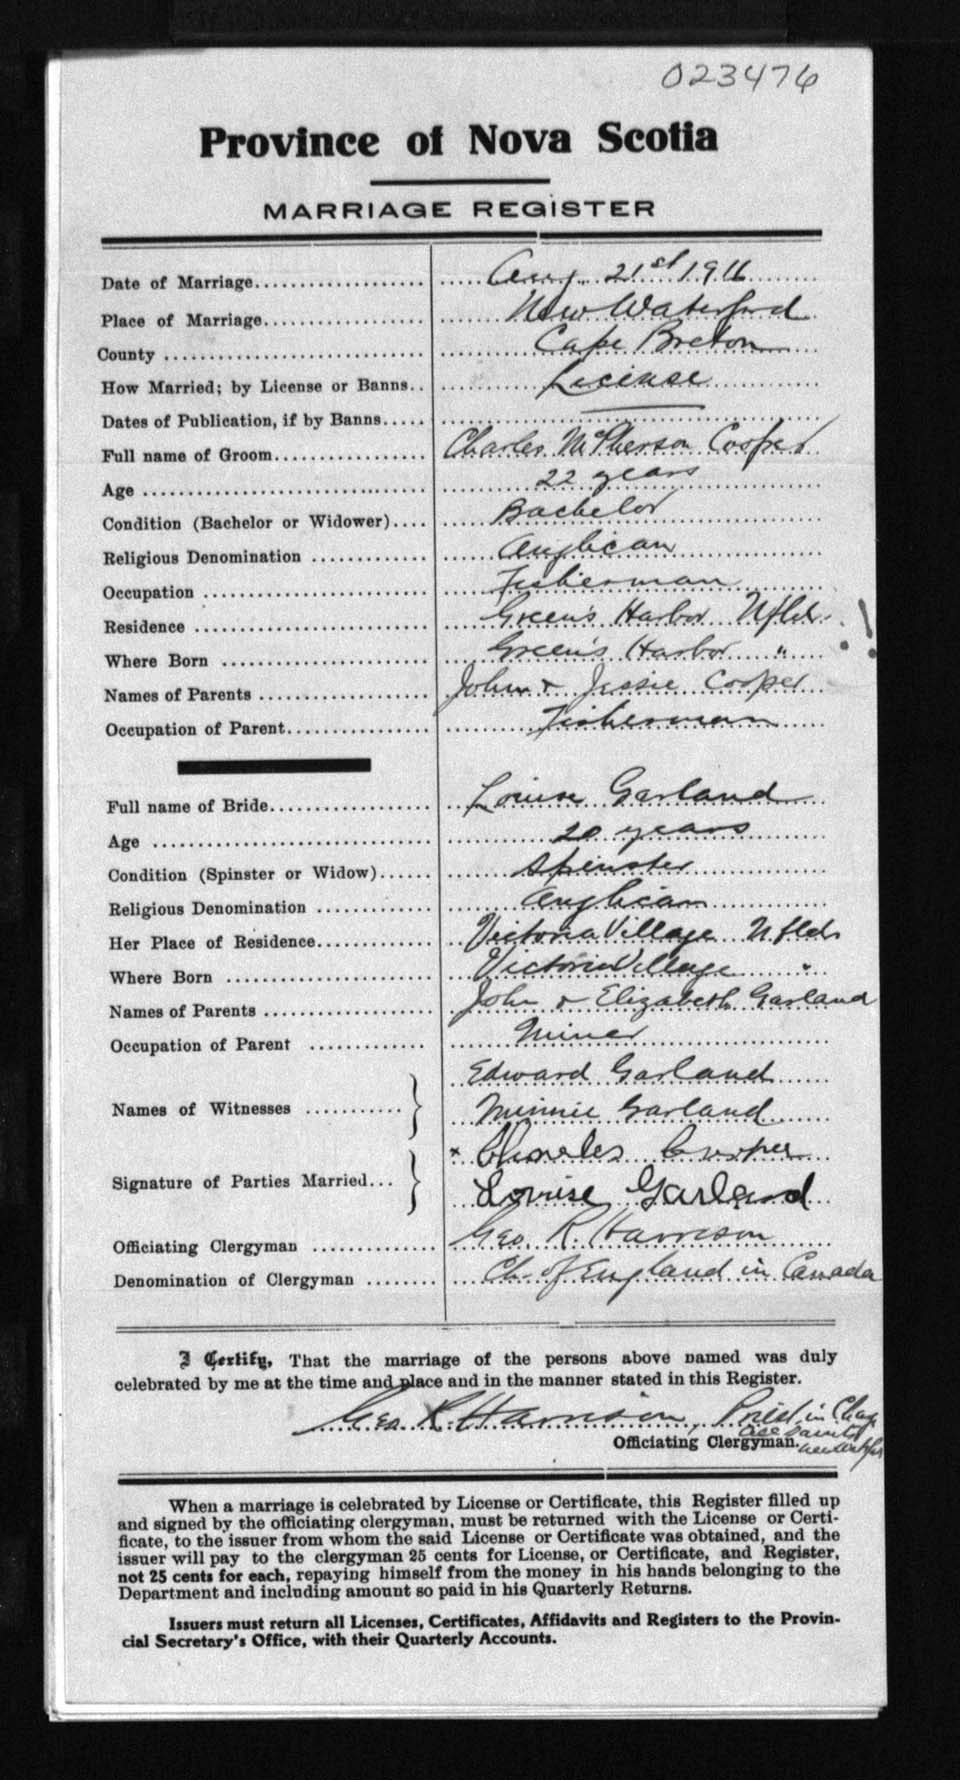 023476
Province of Nova Scotia
MARRIAGE REGISTER
Date of Marriage.................... Aug. 21st 1916
Place of Marriage................... New Waterford
County .............................. Cape Breton
How Married; by License or Banns.. License
Dates of Publication, if by Banns..... ———
Full name of Groom.................. Charles McPherson Cooper
Age ................................. 22 years
Condition (Bachelor or Widower).... Bachelor
Religious Denomination ............. Anglican
Occupation .......................... Fisherman
Residence ........................... Green's Harbor Nfld.
Where Born ......................... Green's Harbor "
Names of Parents ................... John & Jessie Cooper
Occupation of Parent................ Fisherman
Full name of Bride.................. Louise Garland
Age ................................. 20 years
Condition (Spinster or Widow)...... Spinster
Religious Denomination ............. Anglican
Her Place of Residence.............. Victoria Village Nfld
Where Born ......................... Victoria Village "
Names of Parents ................... John & Elizabeth Garland
Occupation of Parent ............... Miner
Edward Garland
Names of Witnesses ........... Minnie Garland
x Charles Cooper
Signature of Parties Married... Louise Garland
Officiating Clergyman .............. Geo. R. Harrison
Denomination of Clergyman ........ Ch. of England in Canada
I Certify, That the marriage of the persons above named was duly
celebrated by me at the time and place and in the manner stated in this Register.
Geo. R. Harrison, Priest in Chge
Officiating Clergyman.
When a marriage is celebrated by License or Certificate, this Register filled up
and signed by the officiating clergyman, must be returned with the License or Certi-
ficate, to the issuer from whom the said License or Certificate was obtained, and the
issuer will pay to the clergyman 25 cents for License, or Certificate, and Register,
not 25 cents for each, repaying himself from the money in his hands belonging to the
Department and including amount so paid in his Quarterly Returns.
Issuers must return all Licenses, Certificates, Affidavits and Registers to the Provin-
cial Secretary's Office, with their Quarterly Accounts.